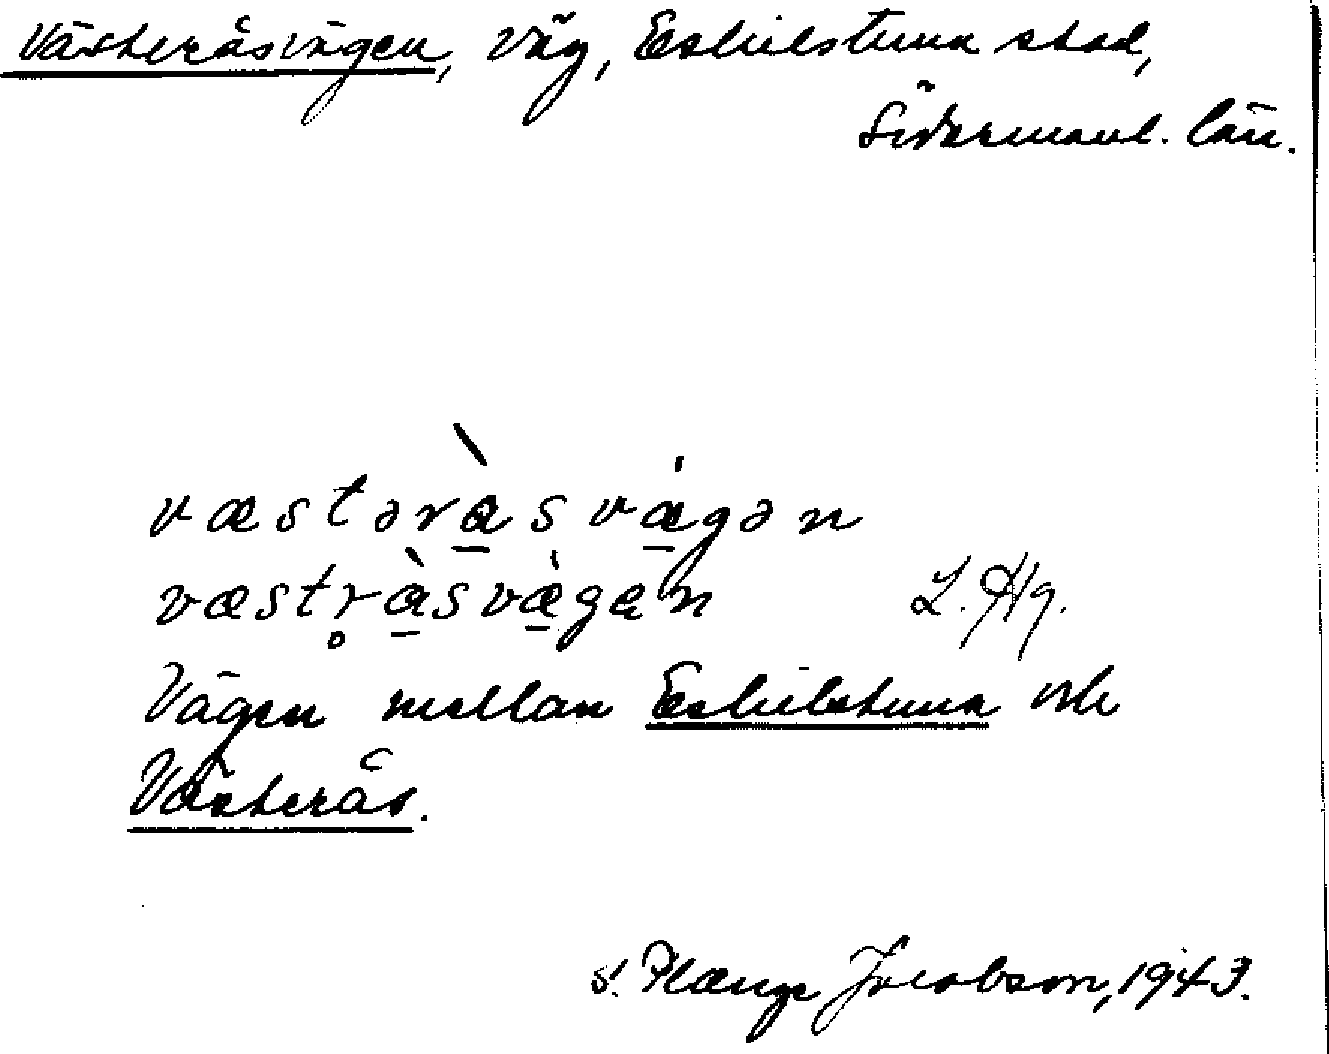 Västeråsvägen, väg, Eskilstuna stad,
Södermanl. län.
væstərà̱svæ̱̀gən
væstr̥à̱svæ̱̀gən L. Hg.
Vägen mellan Eskilstuna och
Västerås.
S. Plænge Jacobson, 1943.